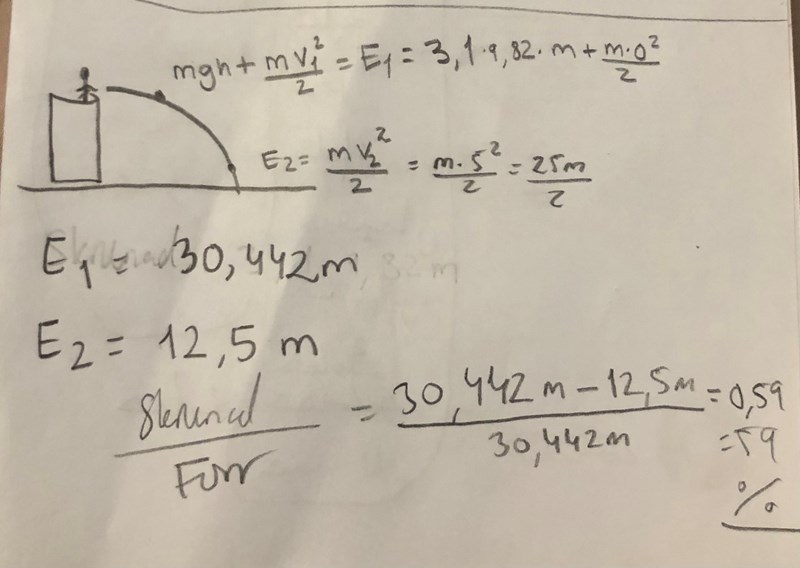 mgh + mv₁²/2 = E₁ = 3,1·9,82·m + m·0²/2
E₂ = mv₂²/2 = m·5²/2 = 25m/2
E₁ = 30,442m
E₂ = 12,5 m
Skrunad/Förr = 30,442m - 12,5m/30,442m = 0,59
= 59
%